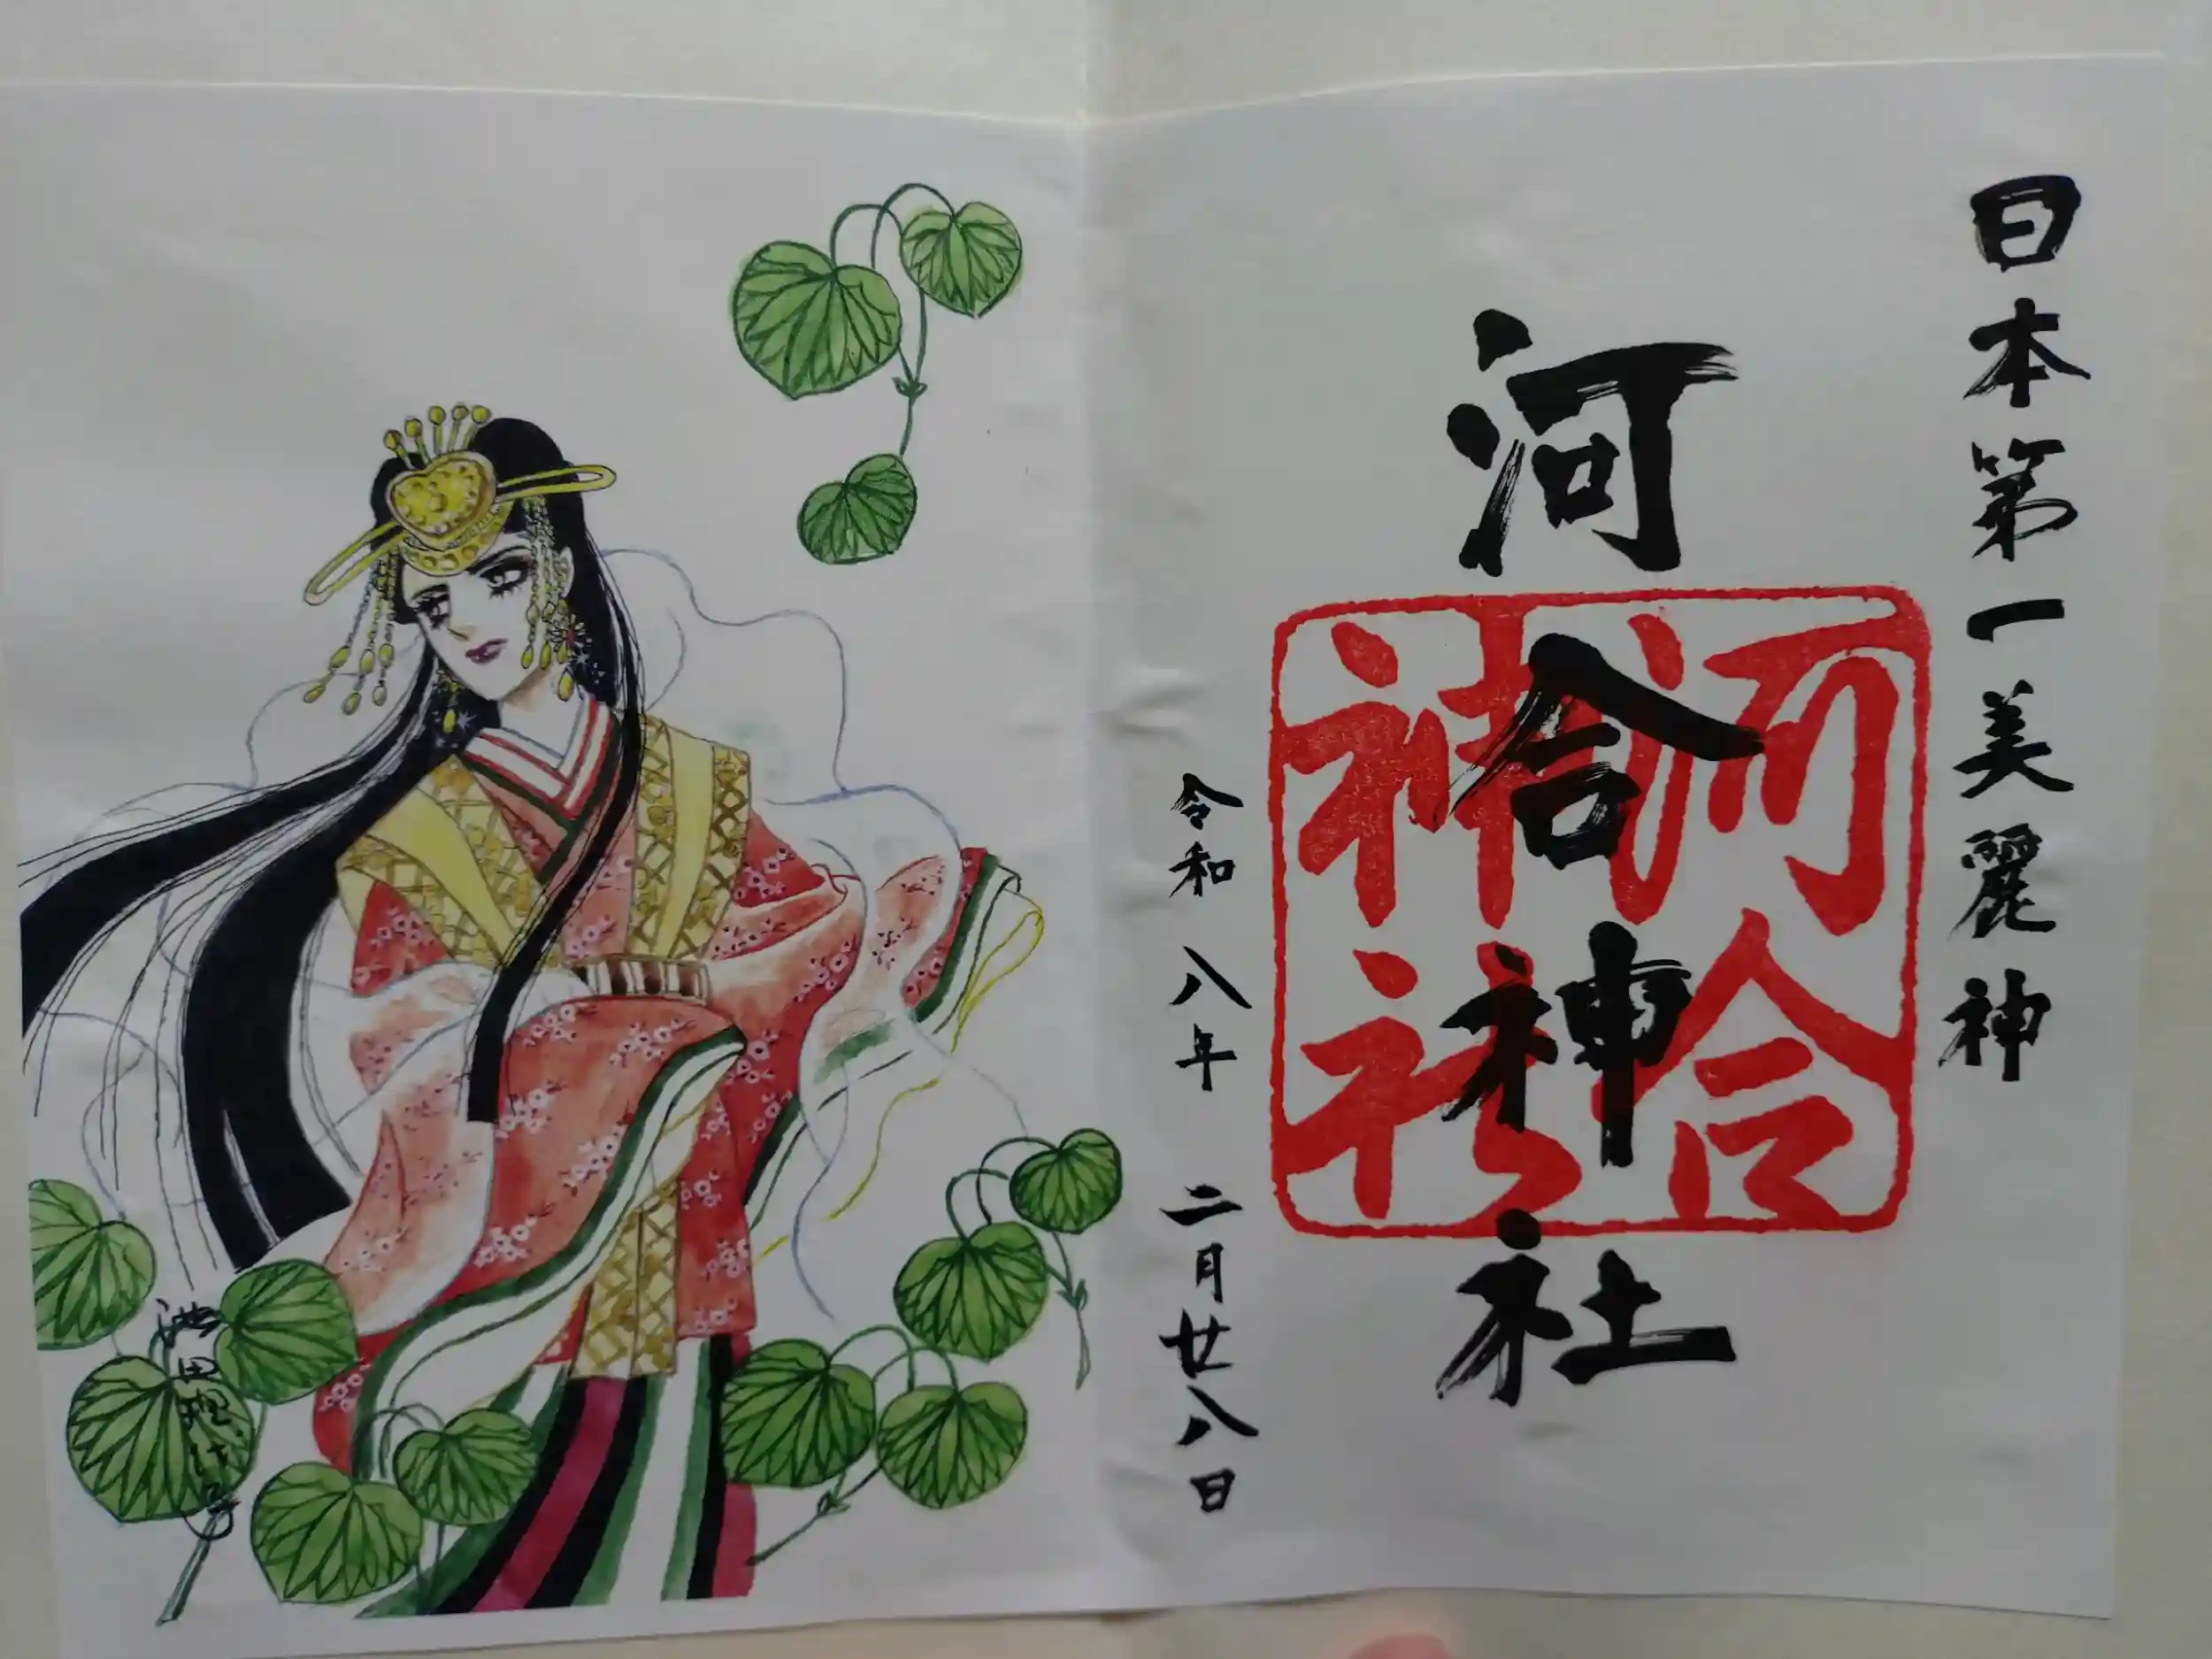 日本第一美麗神
河合神社
河合神社
令和八年 二月廿八日
池田理代子